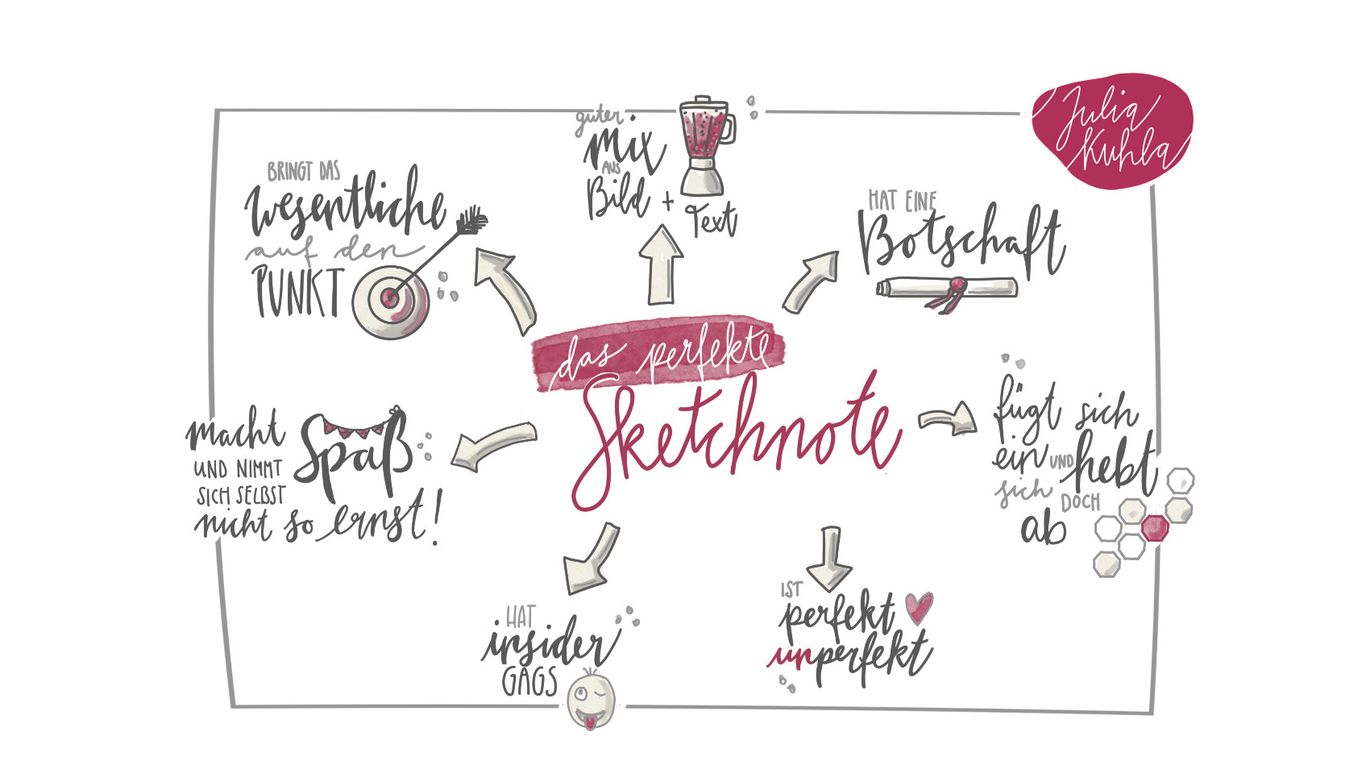 Julia
Kuhla
guter
Mix
AUS
Bild + Text
BRINGT DAS
wesentliche
auf den
PUNKT
HAT EINE
Botschaft
das perfekte
Sketchnote
macht Spaß
UND NIMMT
SICH SELBST
nicht so ernst!
fügt sich
ein UND hebt
sich DOCH
ab
HAT
insider
GAGS
IST
perfekt
unperfekt